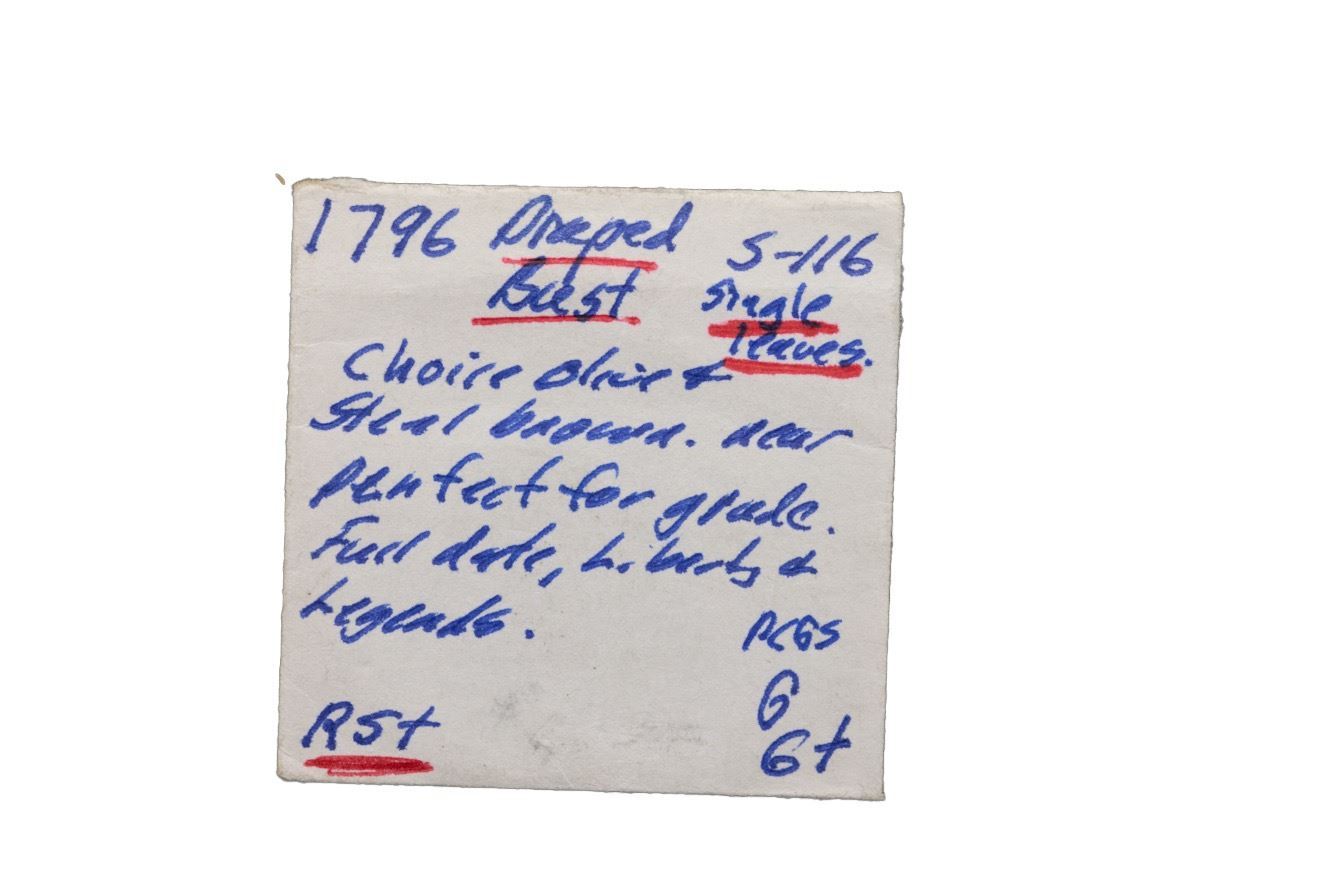 1796 Draped S-116
Bust single
leaves.
Choice olive &
Steel brown. near
perfect for grade.
Full date, Liberty &
Legends.
PCGS
G
R5+ 6+